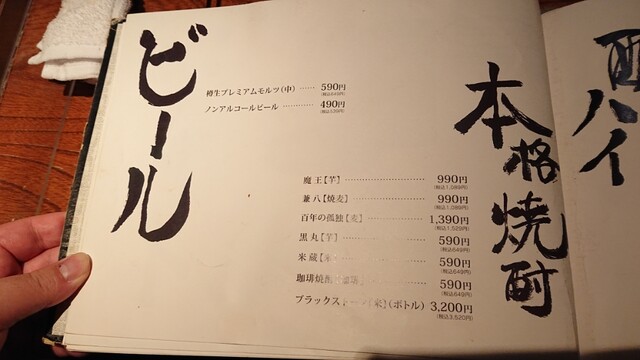 ビール
樽生プレミアムモルツ(中) …… 590円
(税込649円)
ノンアルコールビール ………… 490円
(税込539円)
本格焼酎
魔王【芋】 ………………… 990円
(税込1,089円)
兼八【焼麦】 ………………… 990円
(税込1,089円)
百年の孤独【麦】 ……………… 1,390円
(税込1,529円)
黒丸【芋】 ………………… 590円
(税込649円)
米蔵【米 590円
(税込649円)
珈琲焼酎 590円
(税込649円)
ブラックスト 【米】(ボトル) 3,200円
(税込3,520円)
酎ハイ